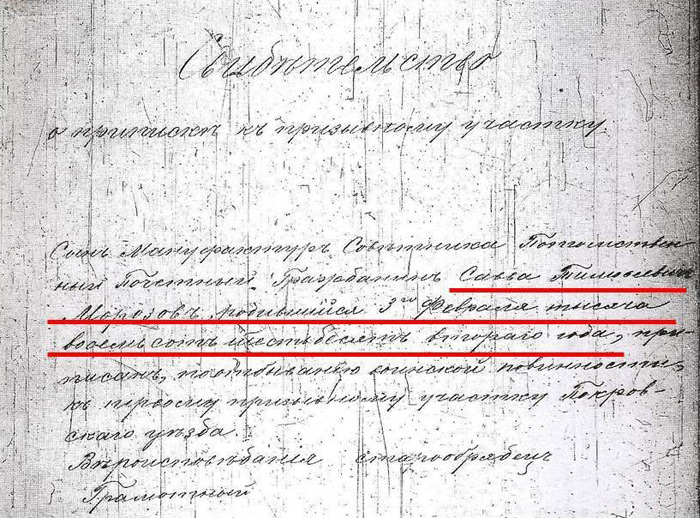 Свидѣтельство
о припискѣ къ призывному участку.
Сынъ Мануфактуръ Совѣтника Потомствен-
ный Почетный Гражданинъ Савва Тимофѣевичъ
Морозовъ, родившійся 3го Февраля тысяча
восемьсотъ шестьдесятъ втораго года, при-
писанъ, по отбыванію воинской повинности,
къ первому призывному участку Покров-
скаго уѣзда.
Вѣроисповѣданія старообрядецъ
Грамотный